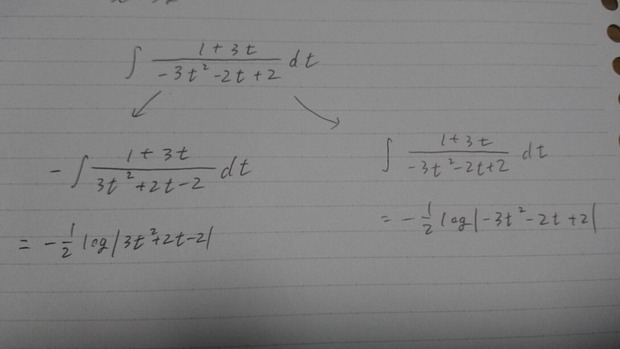 ∫ (1+3t)/(-3t²-2t+2) dt
-∫ (1+3t)/(3t²+2t-2) dt
= -1/2 log|3t²+2t-2|
∫ (1+3t)/(-3t²-2t+2) dt
= -1/2 log|-3t²-2t+2|